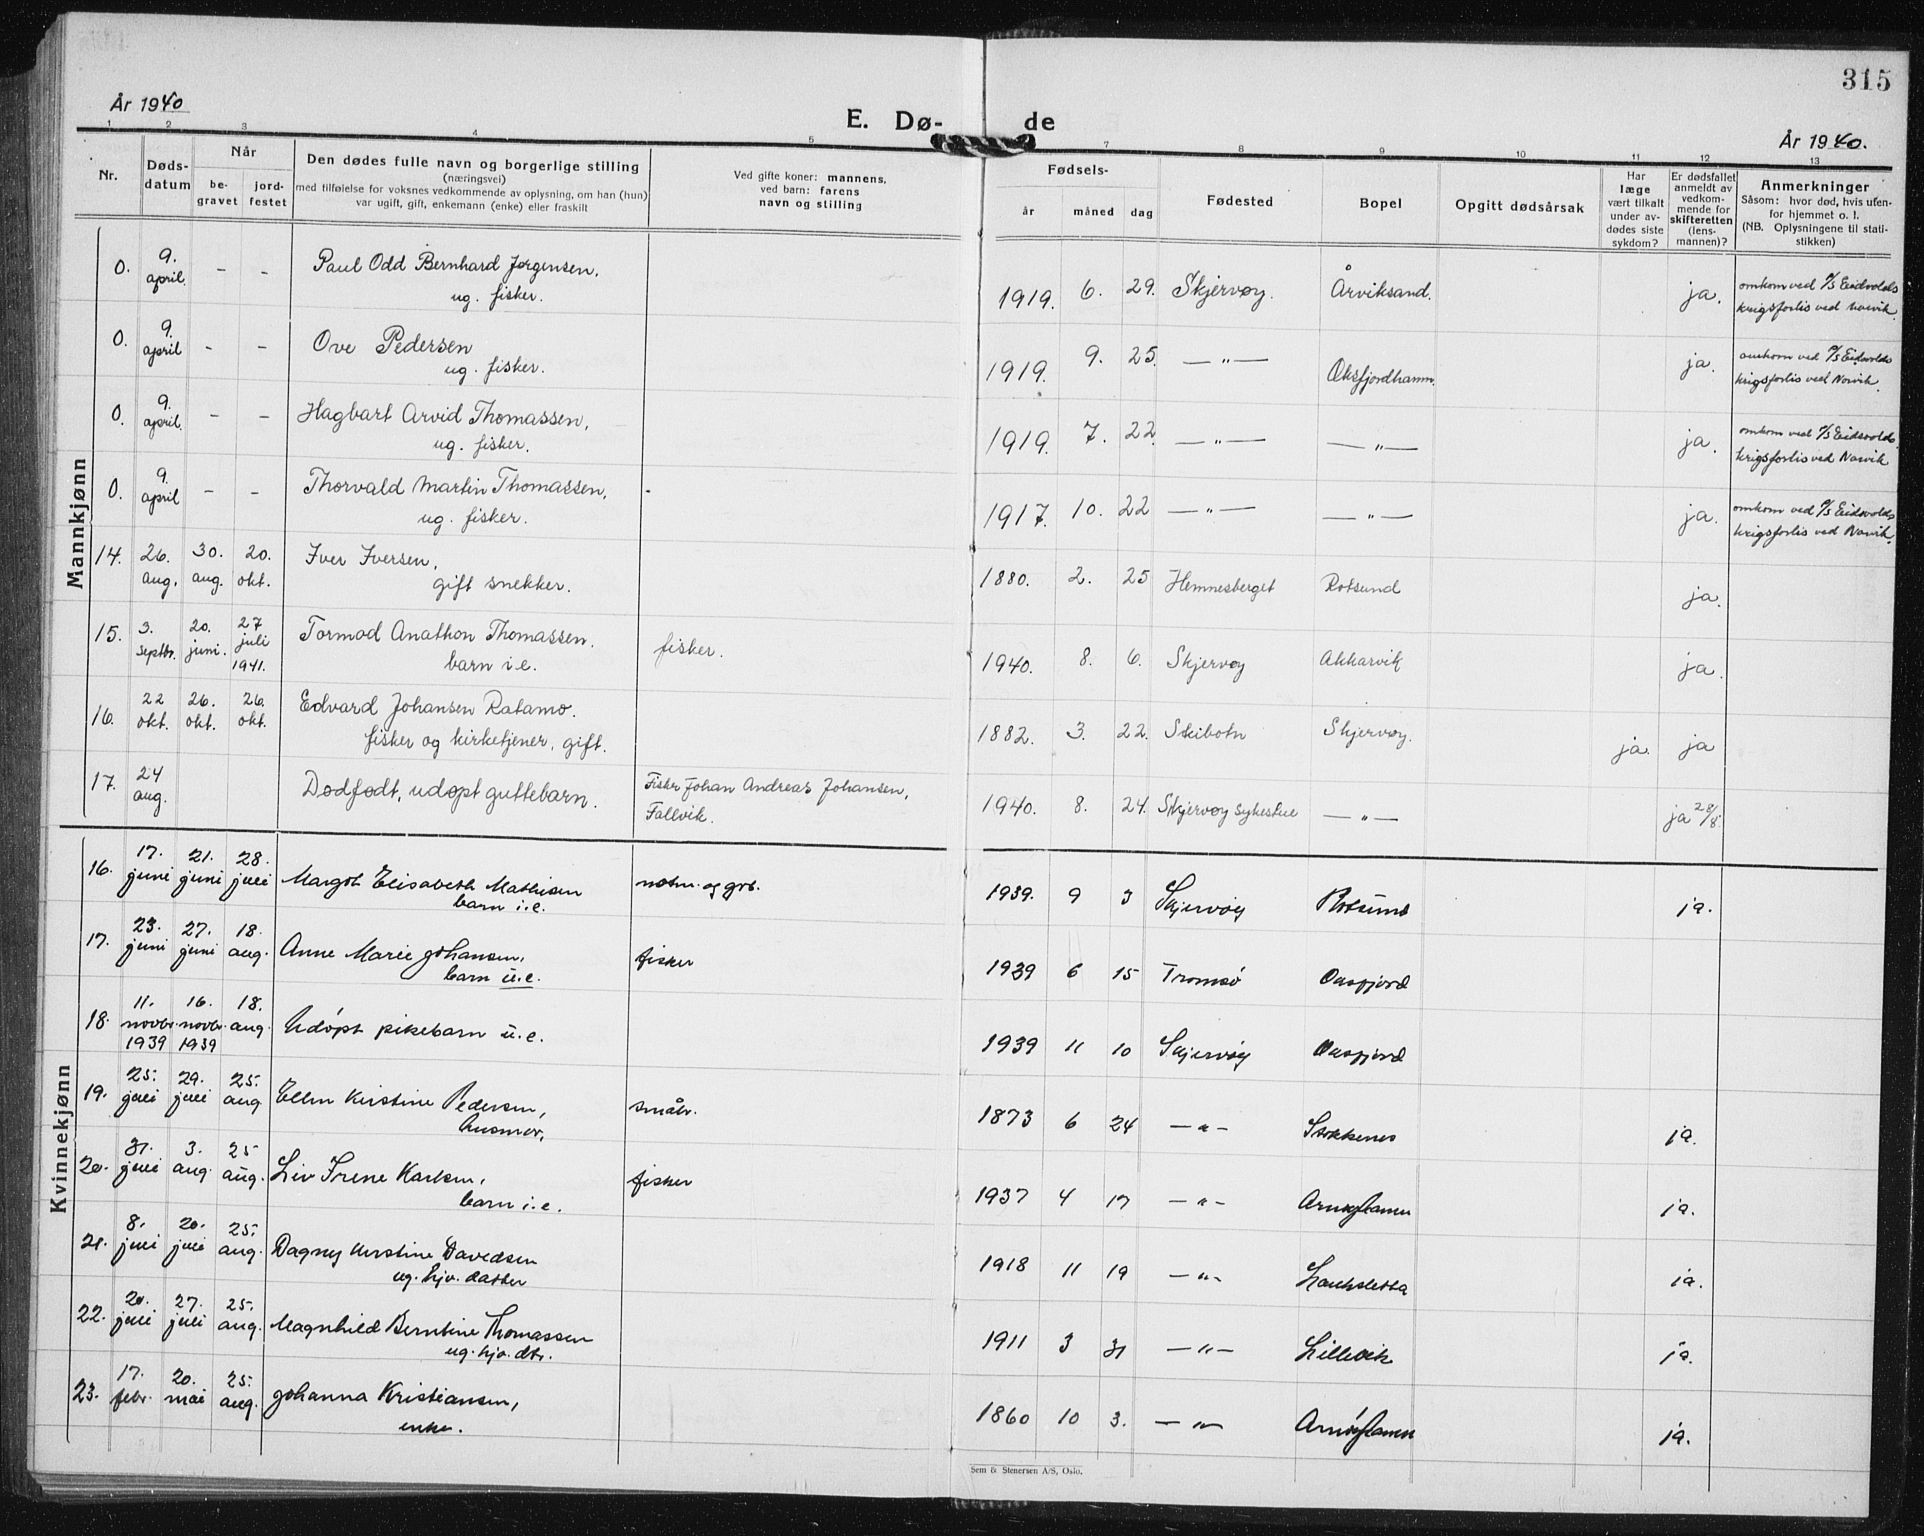 315
År 1940
E. Dø- de
År 1940.
1 2 3 4 5 7 8 9 10 11 12 13
Nr.
Døds-
datum
Når
be-
gravet
jord-
festet
Den dødes fulle navn og borgerlige stilling
(næringsvei)
med tilføielse for voksnes vedkommende av oplysning, om han (hun)
var ugift, gift, enkemann (enke) eller fraskilt
Ved gifte koner: mannens,
ved barn: farens
navn og stilling
Fødsels-
år måned dag
Fødested
Bopel
Opgitt dødsårsak
Har
læge
vært tilkalt
under av-
dødes siste
sykdom?
Er dødsfallet
anmeldt av
vedkom-
mende for
skifteretten
(lens-
mannen)?
Anmerkninger
Såsom: hvor død, hvis uten-
for hjemmet o. l.
(NB. Oplysningene til stati-
stikken)
Mannkjønn
0. 9. april - - Paul Odd Bernhard Jørgensen, ug. fisker. 1919. 6. 29. Skjervøy. Årviksand. ja. omkom ved P/S Eidsvolds krigsforlis ved Narvik.
0. 9. april - - Ove Pedersen ug. fisker. 1919. 9. 25. — " — Oksfjordhamn. ja. omkom ved P/S Eidsvolds krigsforlis ved Narvik.
0. 9. april. - - Hagbart Arvid Thomassen, ug. fisker. 1919. 7. 22. — " — — " — ja. omkom ved P/S Eidsvolds krigsforlis ved Narvik
0. 9. april - - Thorvald Martin Thomassen, ug. fisker. 1917. 10. 22 — " — — " — ja. omkom ved P/S Eidsvolds krigsforlis ved Narvik.
14. 26. aug. 30. aug. 20. okt. Iver Iversen, gift snekker. 1880. 2. 25 Hemnesberget Rotsund ja.
15. 3. septbr. 20. juni. 27 juli 1941. Tormod Anathon Thomassen. barn i.e. fisker. 1940. 8. 6. Skjervøy Akkarvik ja.
16. 22 okt. 26. okt. 26. okt. Edvard Johansen Ratamo. fisker og kirketjener, gift. 1882. 3. 22. Skibotn Skjervøy. ja. ja
17. 24 aug. Dødfødt, udøpt guttebarn. Fisker Johan Andreas Johansen, Fallvik. 1940. 8. 24. Skjervøy sykestue — " — ja 28/8
Kvinnekjønn
16. 17. juni 21. juni 28. juli Margot Elisabeth Mathisen barn i.e. notm. og grb. 1939. 9 3 Skjervøy Rotsund ja.
17. 23. juni 27. juni 18. aug. Anne Marie Johansen, barn u.e. fisker 1939 6 15 Tromsø Oksfjord
18. 11. novbr. 1939 16. novbr. 1939 18. aug. Udøpt pikebarn u.e. 1939 11 10 Skjervøy Oksfjord
19. 25. juli 29. juli 25. aug Ellen Kirstine Pedersen, husmor, småbr. 1873 6 24 — " — Stokkenes ja.
20. 31. juli 3. aug. 25 aug. Liv Irene Karlsen, barn i.e. fisker 1937 4 17 — " — Arnøyhamn ja.
21. 8. juli 20. juli 25. aug. Dagny Kirstine Davidsen ug. hjv. datter 1918 11 19 — " — Lauksletta ja.
22. 20. juli 27. juli 25. aug. Magnhild Berntine Thomassen ug. hjv. dtr. 1911 3 31 — " — Lillevik ja.
23. 17. febr. 20. mai 25. aug. Johanna Kristiansen, enke. 1860 10 3. — " — Arnøyhamn ja.
Sem & Stenersen A/S, Oslo.